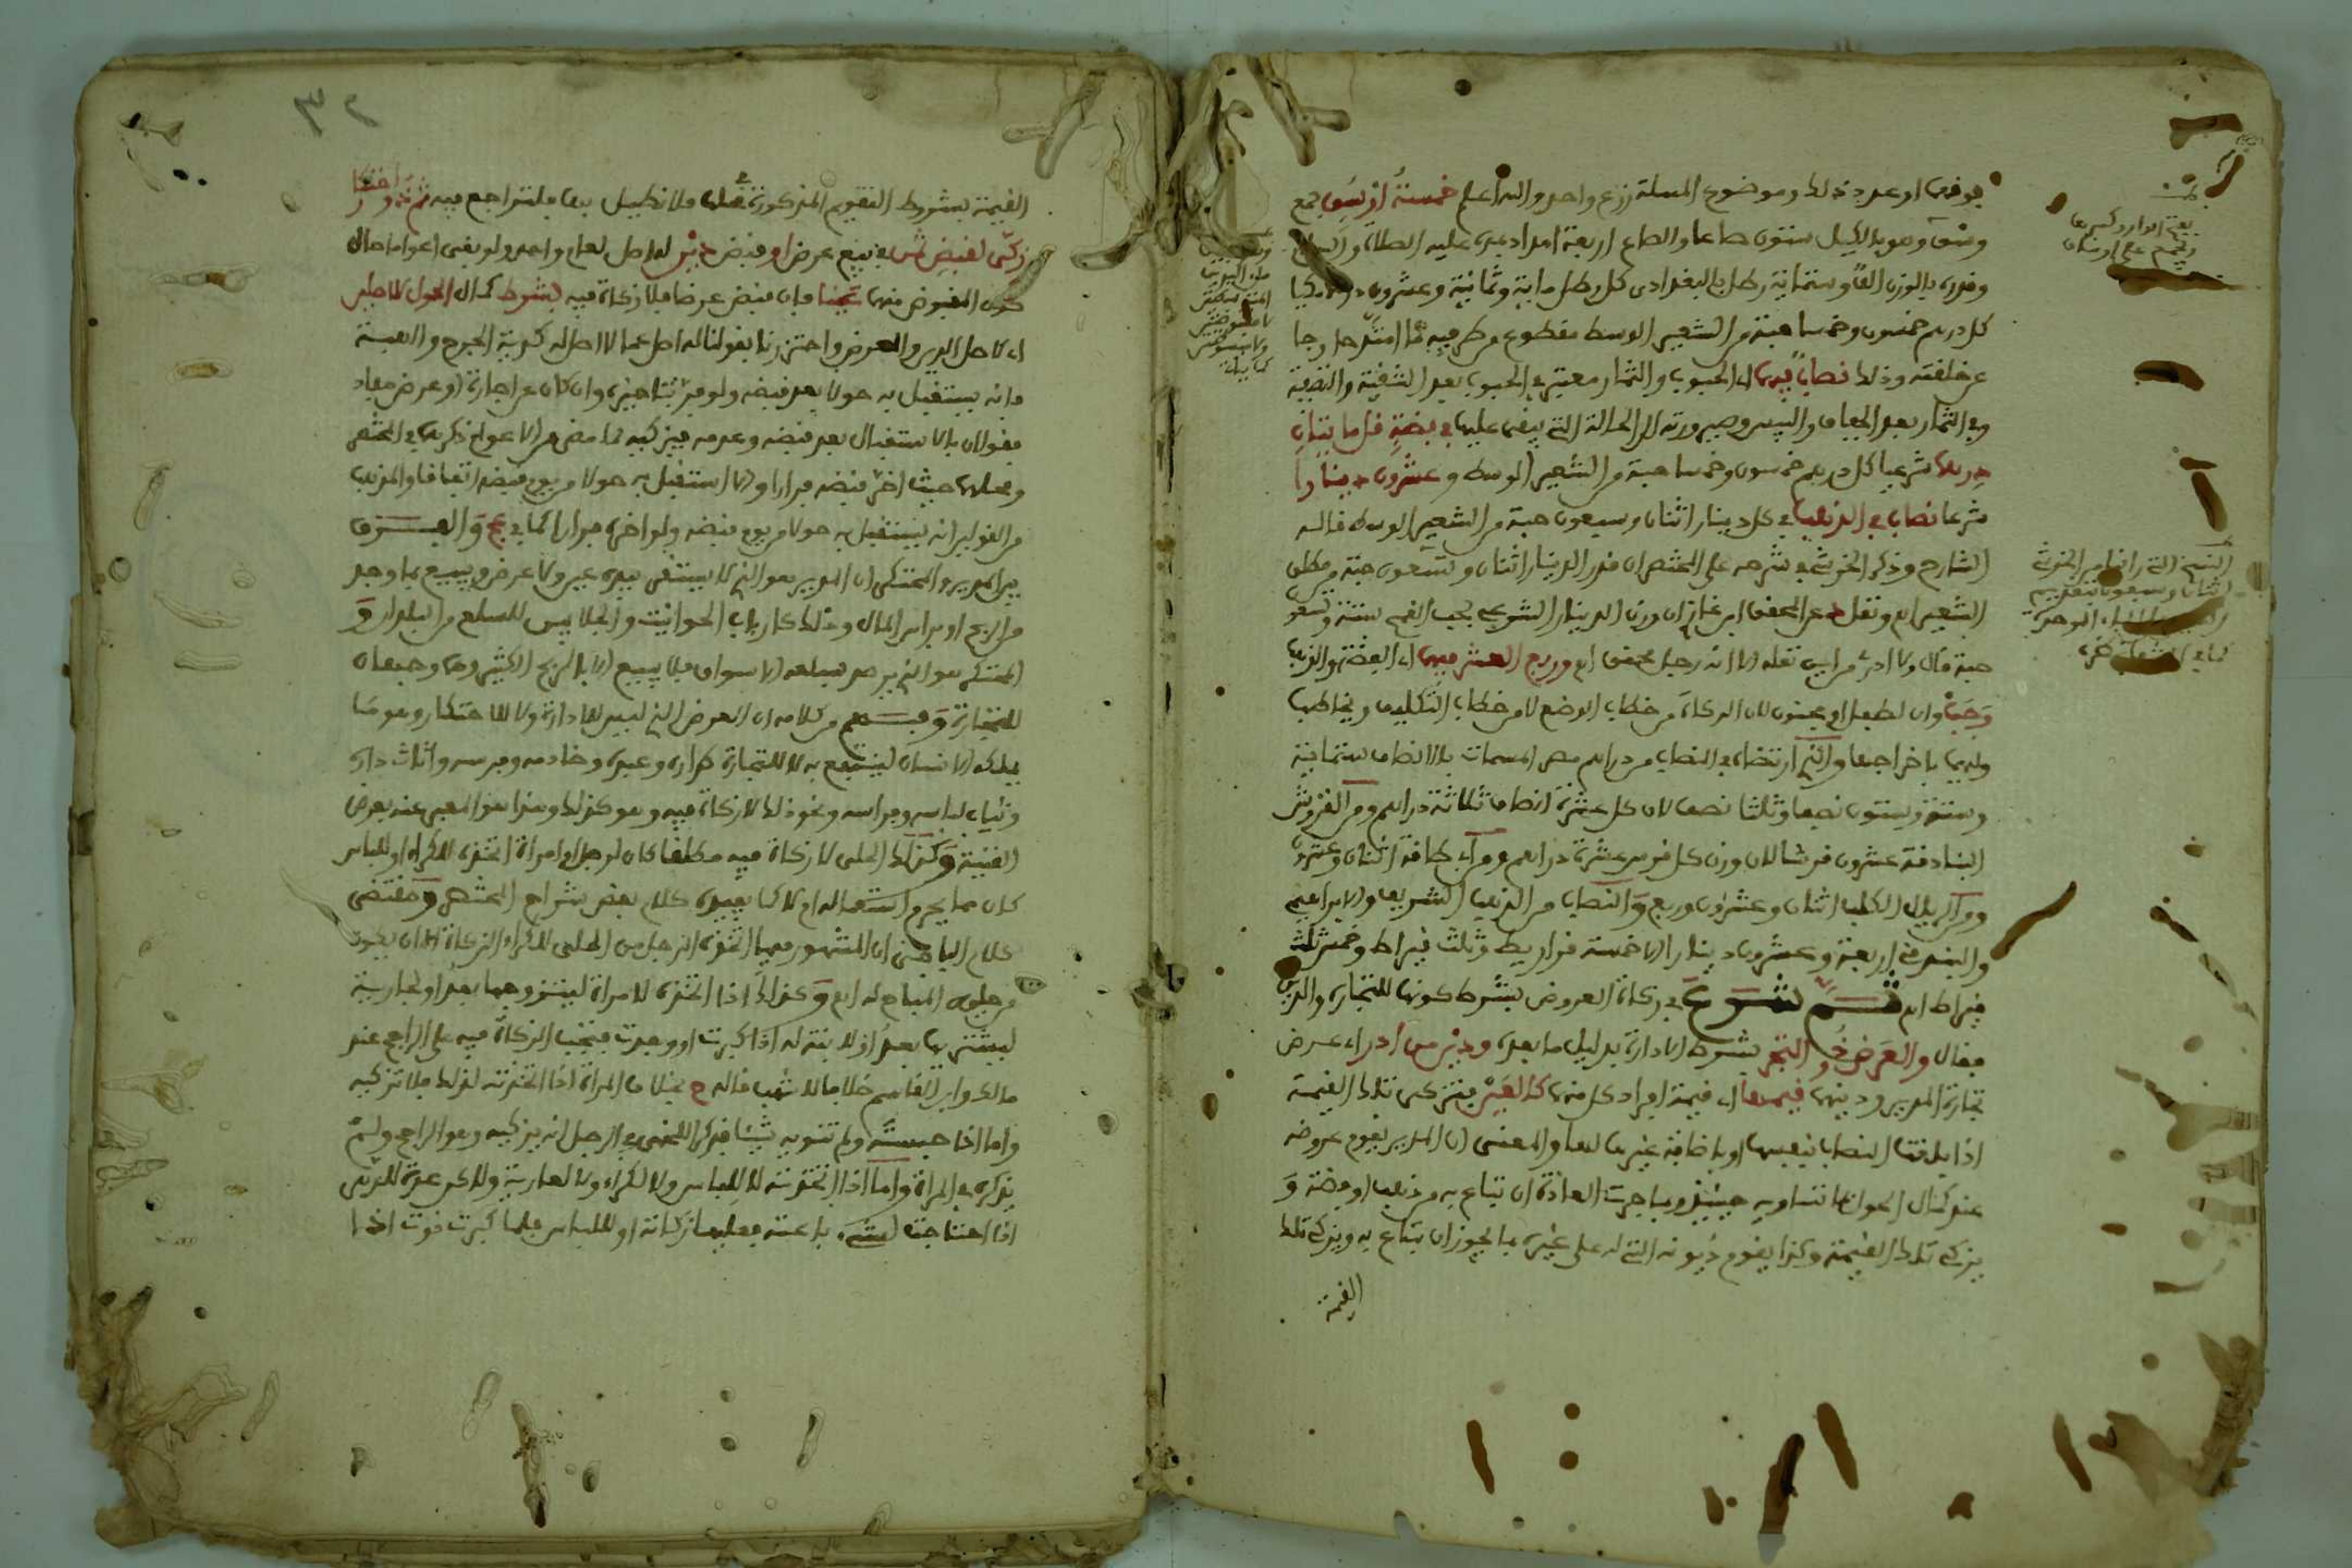 يوفى او عدد ذلك وموضوع المسئلة زرع واحد والله اعلم خمسة اوسق جمع
وسق وهو بالكيل ستون صاعا والصاع اربعة امداد بمده عليه الصلاة والسلام
وقدره بالوزن الف وستماية رطل بالبغدادى كل رطل ماية وثمانية وعشرون درهما مكيا
كل درهم خمسون وخمسا حبة من الشعير الوسط مقطوع من طرفيه ما امتد خارجا
عن خلقته وذلك نصاب فيهما اى الحبوب والثمار معتبر فى الحبوب بعد التنقية والتصفية
وفى الثمار بعد الجفاف واليبس وصيرورته الى الحالة التى يبقى عليها فى فضة قل مايتان
درهما شرعيا كل درهم خمسون وخمسا حبة من الشعير الوسط وعشرون دينارا
شرعا نصاب فى الذهب فى كل دينار اثنان وسبعون حبة من الشعير الوسط قاله
الشارح وذكر الخرشى فى شرحه على المختصر ان قدر الدينار اثنان وتسعون حبة من مطلق
الشعير اه ونقل عن المحقق ابن غازى ان وزن الدينار الشرعى بحب القمح ستة وتسعون
حبة قال ولا ادرى من اين نقله الا انه رجل محقق اه وربع العشر فيهما اى الفضة والذهب
وجب وان لطفل او مجنون لان الزكاة من خطاب الوضع لا من خطاب التكليف ويخاطب
وليهما باخراجها والذى ارتضاه فى النصاب من دراهم مصر المسمات بالانصاف ستماية
وستة وستون نصفا وثلثا نصف لان كل عشرة انصاف ثلاثة دراهم ومن القروش
البنادقة عشرون قرشا لان وزن كل قرش عشرة دراهم ومن اى طاقة اثنان وعشرون
ومن الريال الكلب اثنان وعشرون وربع والنصاب من الذهب الشريفى والابراهيمى
والبندقى اربعة وعشرون دينارا الا خمسة قراريط وثلث قيراط وخمس ثلث
قيراط اه ثم شرع فى زكاة العروض بشرط كونها للتجارة والدين
فقال والعرض ذو التجر بشرط الادارة بدليل ما بعده ودين من ادار اى عرض
تجارة المدير ودينه قيمتها اى قيمة افراد كل منهما كالعين فتزكى تلك القيمة
اذا بلغت النصاب بنفسها او باضافة غيرها لها والمعنى ان المدير يقوم عروضه
عند كمال الحول بما تساويه حينئذ وبما جرت العادة ان تباع به من ذهب او فضة و
يزكى تلك القيمة وكذا يقوم ديونه التى له على غيره بما يجوز ان تباع به ويزكى تلك
القيمة
القيمة بشروط التقويم المذكورة قبله فلا نطيل بها فلتراجع فيه ثم ذو احتكار
زكى لقبض ثمن فى بيع عرض او قبض دين له اصل لعام واحد ولو بقى اعواما حال
كون المقبوض منهما عينا فان قبض عرضا فلا زكاة فيه بشرط كمال الحول للاصلين
اى لاصل الدين والعرض واحترزنا بقولنا له اصل عما لا اصل له كدية الجرح والهبة
فانه يستقبل به حولا بعد قبضه ولو فر بتاخيره وان كان عن اجارة او عرض مفاد
فقولان بالاستقبال بعد قبضه وعدمه فيزكيه لما مضى من الاعوام ذكرهما فى المختصر
ومحلهما حيث اخر قبضه فرارا والا استقبل به حولا من يوم قبضه اتفاقا والمذهب
من القولين انه يستقبل به حولا من يوم قبضه ولو اخره فرارا كما فى عج والفرق
بين المدير والمحتكر ان المدير هو الذى لا يستقر بيده عين ولا عرض ويبيع بما وجد
من الربح او براس المال وذلك كارباب الحوانيت والجلابين للسلع من البلدان و
المحتكر هو الذى يرصد بسلعه الاسواق فلا يبيع الا بالربح الكثير وهما وجهان
للتجارة وفهم من كلامه ان العرض الذى ليس للادارة ولا للاحتكار وهو ما
يملكه الانسان لينتفع به لا للتجارة كداره وعبده وخادمه وفرسه واثاث داره
وثياب لباسه وفراشه ونحو ذلك لا زكاة فيه وهو كذلك وهذا هو المعبر عنه بعرض
القنية وكذلك الحلى لا زكاة فيه مطلقا كان لرجل او امراة اتخذ للكراء او للباس
كان مما يحرم استعماله ام لا كما يفيده كلام بعض شراح المختصر ومقتضى
كلام الباجى ان المشهور فيما اتخذه الرجل من الحلى للكراء الزكاة الا ان يكون
من حلية المباح له اه وكذلك اذا اتخذه لامراة ليتزوجها بعد او لجارية
ليشتريها بعد او لابنته له اذا كبرت او وجدت فتجب الزكاة فيه على الراجح عند
مالك وابن القاسم خلافا لاشهب قاله ح بخلاف المراة اذا اتخذته لذلك فلا تزكيه
واما اذا حبسته ولم تنو به شيئا فذكر اللخمى فى الرجل انه يزكيه وهو الراجح ولم
يذكره فى المراة واما اذا اتخذته لا للباس ولا لكراء ولا لعارية ولاكن عدة للدهر
اذا احتاجت لشىء باعته فعليها زكاته او للباس فلما كبرت نوت اذا